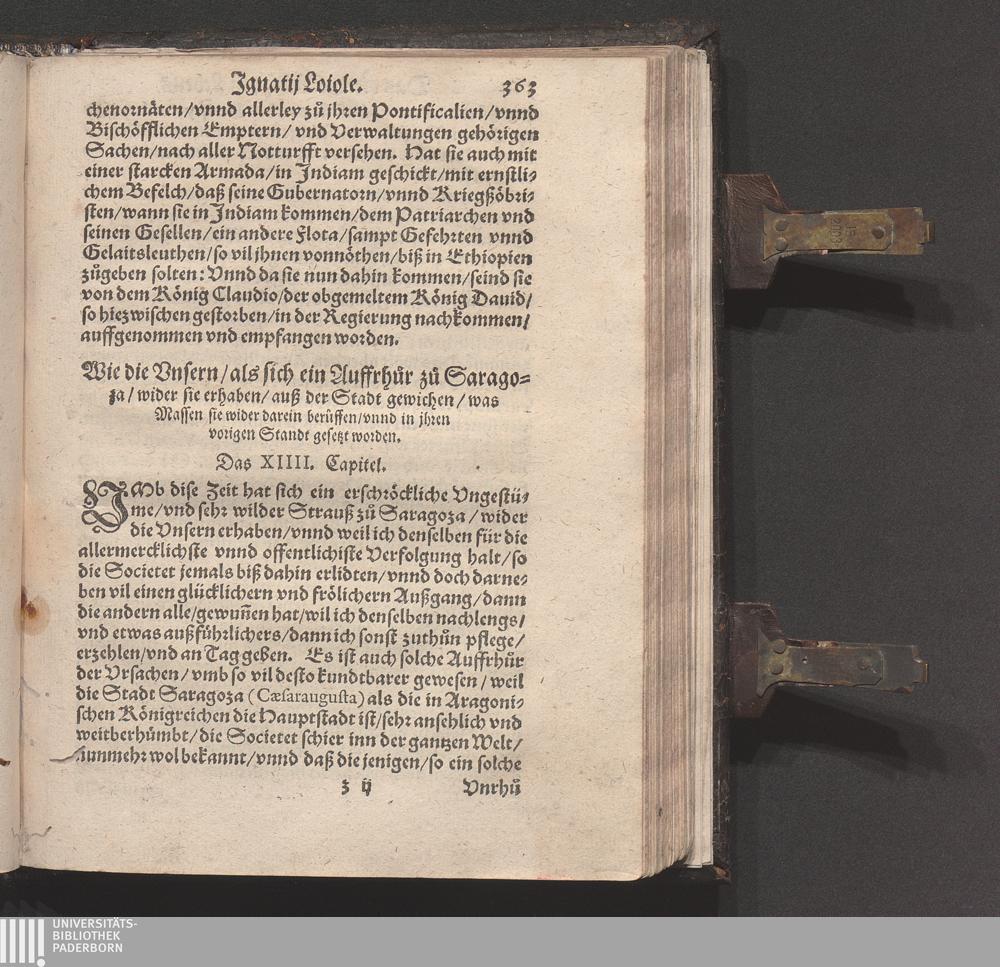 Ignatij Loiole. 363
chenornäten/vnnd allerley zů jhren Pontificalien/vnnd
Bischöfflichen Emptern/ vnd Verwaltungen gehörigen
Sachen/nach aller Notturfft versehen. Hat sie auch mit
einer starcken Armada/in Indiam geschickt/mit ernstli⸗
chem Befelch/daß seine Gubernatorn/vnnd Kriegßöbri⸗
sten/wann sie in Indiam kommen/dem Patriarchen vnd
seinen Gesellen/ein andere Flota/sampt Gefehrten vnnd
Gelaitsleuthen/so vil jhnen vonnöthen/biß in Ethiopien
zůgeben solten: Vnnd da sie nun dahin kommen/seind sie
von dem König Claudio/der obgemeltem König Dauid/
so hiezwischen gestorben/in der Regierung nachkommen/
auffgenommen vnd empfangen worden.
Wie die Vnsern/als sich ein Auffrhůr zů Sarago⸗
za/wider sie erhaben/auß der Stadt gewichen/was
Massen sie wider darein berůffen/vnnd in jhren
vorigen Standt gesetzt worden.
Das XIIII. Capitel.
VMb dise Zeit hat sich ein erschröckliche Vngestü⸗
me/vnd sehr wilder Strauß zů Saragoza/wider
die Vnsern erhaben/vnnd weil ich denselben für die
allermercklichste vnnd offentlichiste Verfolgung halt/so
die Societet jemals biß dahin erlidten/vnnd doch darne⸗
ben vil einen glücklichern vnd frölichern Außgang/dann
die andern alle/gewuñen hat/wil ich denselben nachlengs/
vnd etwas außführlichers/dann ich sonst zuthůn pflege/
erzehlen/vnd an Tag geben. Es ist auch solche Auffrhůr
der Vrsachen/vmb so vil desto kundtbarer gewesen/weil
die Stadt Saragoza (Cæsaraugusta) als die in Aragoni⸗
schen Königreichen die Hauptstadt ist/sehr ansehlich vnd
weitberhůmbt/die Societet schier inn der gantzen Welt/
nunmehr wol bekannt/vnnd daß die jenigen/so ein solche
z ij Vnrhů
UNIVERSITÄTS-
BIBLIOTHEK
PADERBORN